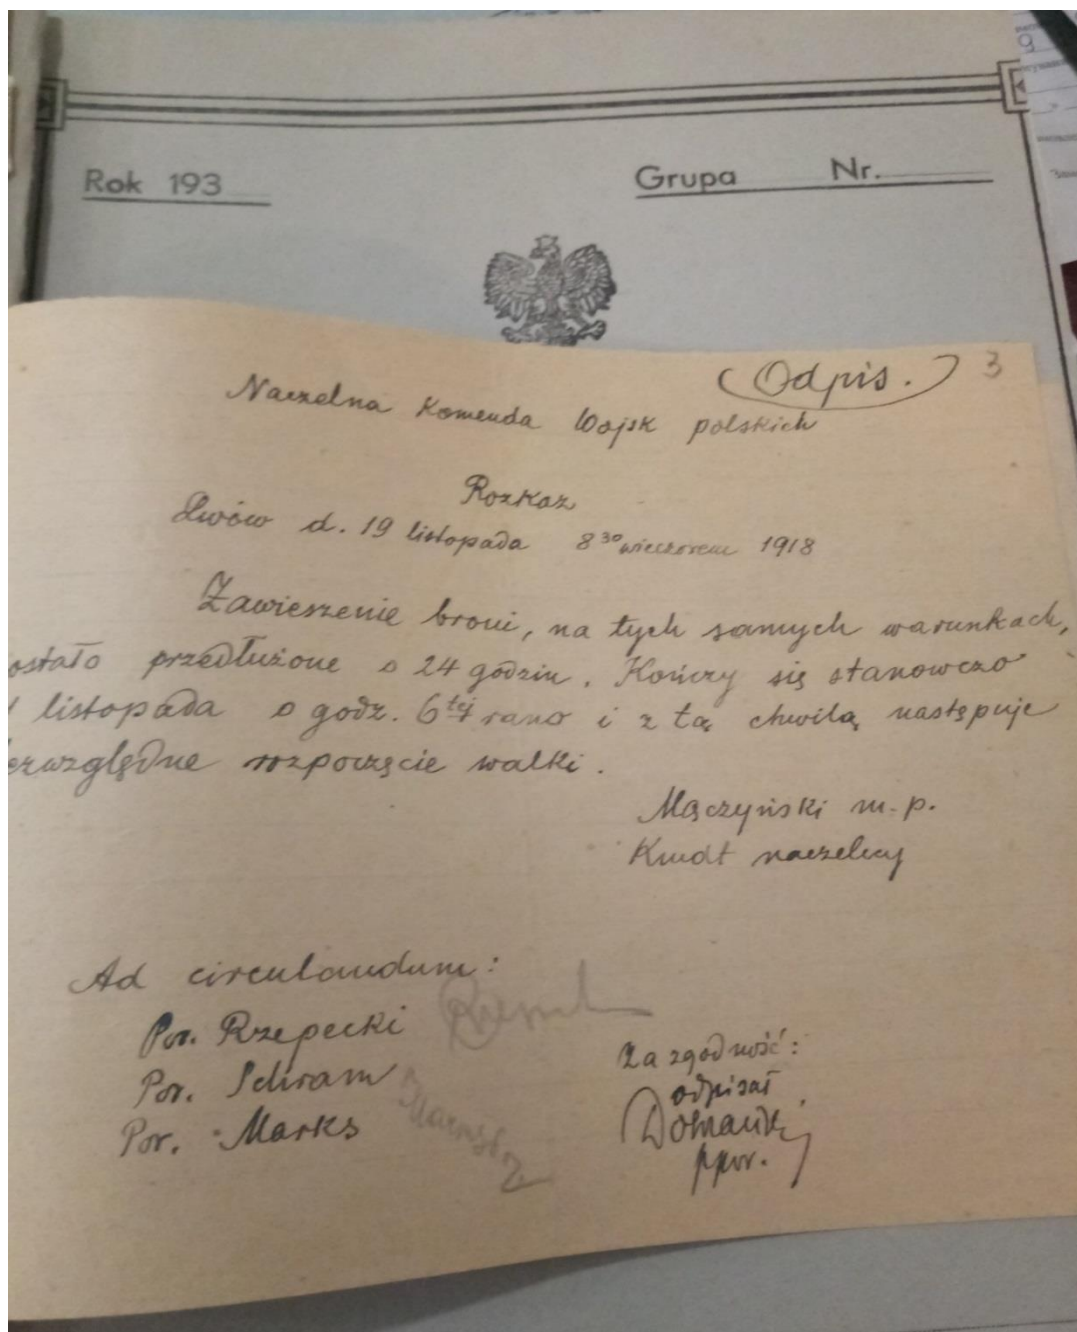 Rok 193
Grupa Nr.
Odpis. 3
Naczelna Komenda Wojsk polskich
Rozkaz
Lwów d. 19 listopada 8³⁰ wieczorem 1918
Zawieszenie broni, na tych samych warunkach,
ostało przedłużone o 24 godzin. Kończy się stanowczo
listopada o godz. 6tej rano i z tą chwilą następuje
ezwzględne rozpoczęcie walki.
Mączyński m.p.
Kmdt naczelny
Ad circulandum:
Por. Rzepecki
Por. Schram
Por. Marks
Za zgodność:
odpisał
ppor.